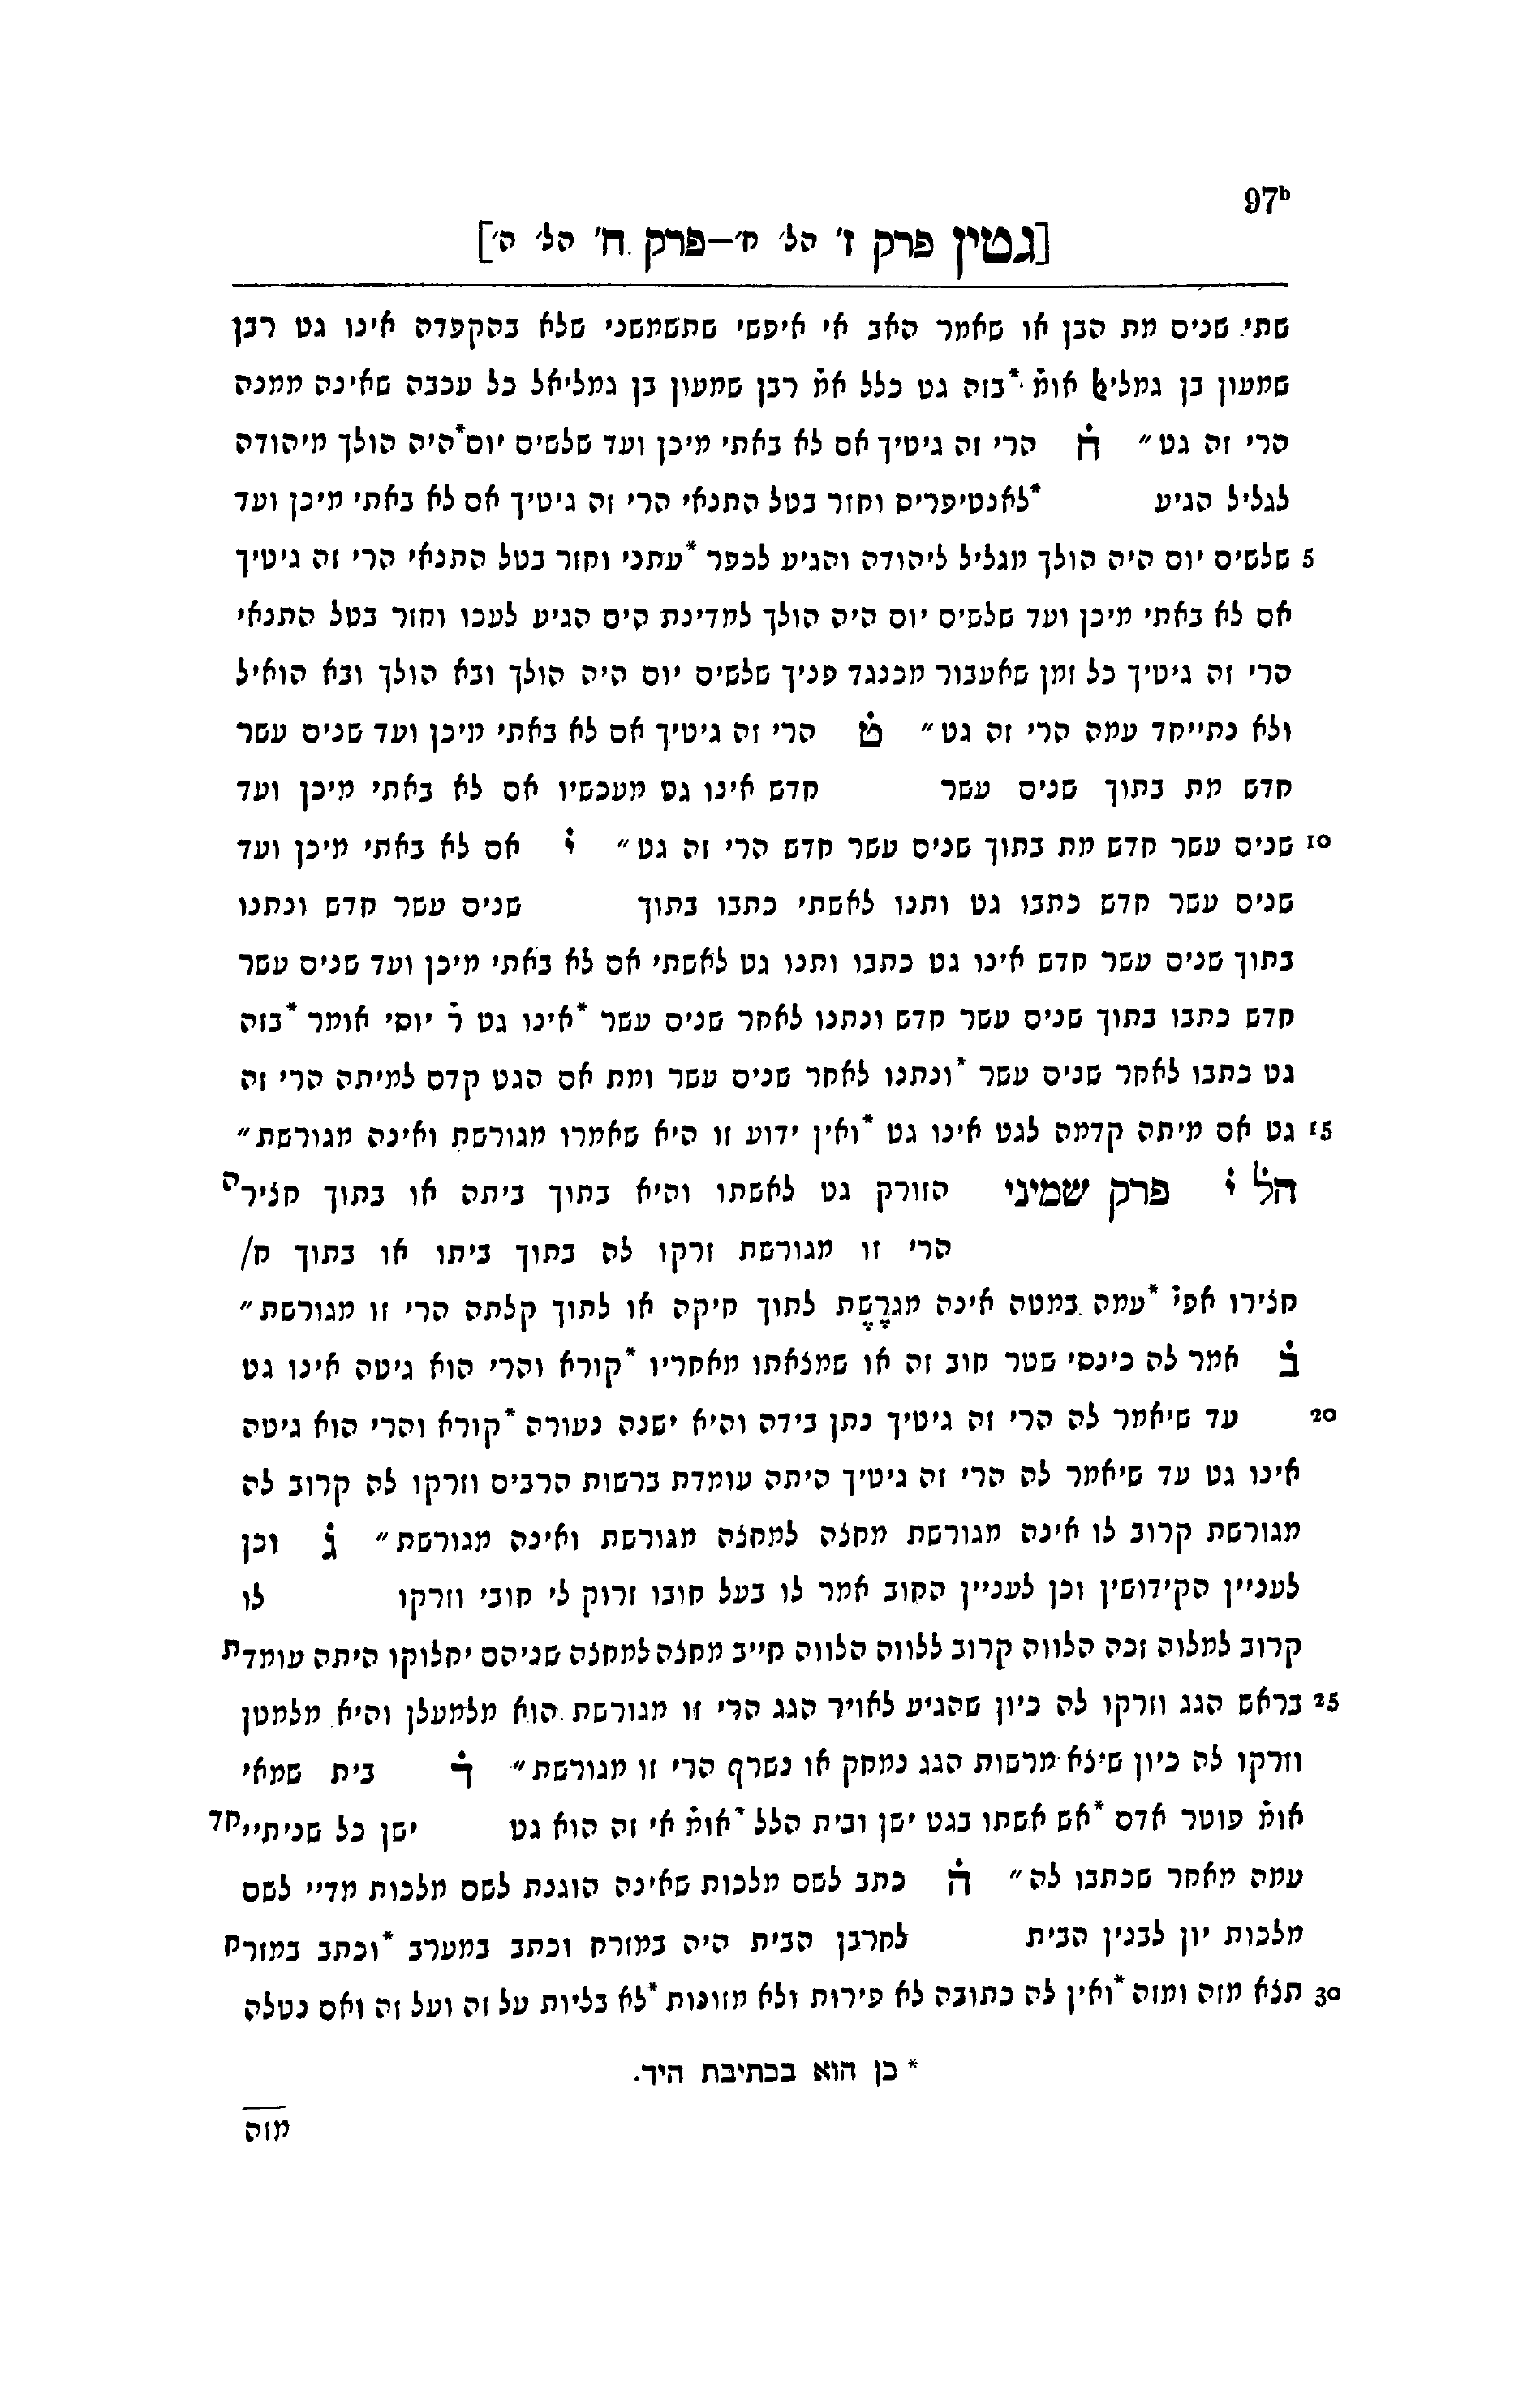 97b
[גטין פרק ז' הל' ח'—פרק ח' הל' ה']
שתי שנים מת הבן או שאמר האב אי איפשי שתשמשני שלא בהקפדה אינו גט רבן
שמעון בן גמליאל אומ' *בזה גט כלל אמ' רבן שמעון בן גמליאל כל עכבה שאינה ממנה
הרי זה גט״ ח הרי זה גיטיך אם לא באתי מיכן ועד שלשים יום *היה הולך מיהודה
לגליל הגיע *לאנטיפריס וחזר בטל התנאי הרי זה גיטיך אם לא באתי מיכן ועד
5 שלשים יום היה הולך מגליל ליהודה והגיע לכפר *עתני וחזר בטל התנאי הרי זה גיטיך
אם לא באתי מיכן ועד שלשים יום היה הולך למדינת הים הגיע לעכו וחזר בטל התנאי
הרי זה גיטיך כל זמן שאעבור מכנגד פניך שלשים יום היה הולך ובא הולך ובא הואיל
ולא נתייחד עמה הרי זה גט״ ט הרי זה גיטיך אם לא באתי מיכן ועד שנים עשר
חדש מת בתוך שנים עשר חדש אינו גט מעכשיו אם לא באתי מיכן ועד
10 שנים עשר חדש מת בתוך שנים עשר חדש הרי זה גט״ י אם לא באתי מיכן ועד
שנים עשר חדש כתבו גט ותנו לאשתי כתבו בתוך שנים עשר חדש ונתנו
בתוך שנים עשר חדש אינו גט כתבו ותנו גט לאשתי אם לא באתי מיכן ועד שנים עשר
חדש כתבו בתוך שנים עשר חדש ונתנו לאחר שנים עשר *אינו גט ר' יוסי אומר *בזה
גט כתבו לאחר שנים עשר *ונתנו לאחר שנים עשר ומת אם הגט קדם למיתה הרי זה
15 גט אם מיתה קדמה לגט אינו גט *ואין ידוע זו היא שאמרו מגורשת ואינה מגורשת״
הל י פרק שמיני הזורק גט לאשתו והיא בתוך ביתה או בתוך חצירה
הרי זו מגורשת זרקו לה בתוך ביתו או בתוך ח/
חצירו אפי' *עמה במטה אינה מגרֶשֶת לתוך חיקה או לתוך קלתה הרי זו מגורשת״
ב אמר לה כינסי שטר חוב זה או שמצאתו מאחריו *קורא והרי הוא גיטה אינו גט
20 עד שיאמר לה הרי זה גיטיך נתן בידה והיא ישנה נעורה *קורא והרי הוא גיטה
אינו גט עד שיאמר לה הרי זה גיטיך היתה עומדת ברשות הרבים וזרקו לה קרוב לה
מגורשת קרוב לו אינה מגורשת מחצה למחצה מגורשת ואינה מגורשת״ ג וכן
לעניין הקידושין וכן לעניין החוב אמר לו בעל חובו זרוק לי חובי וזרקו לו
קרוב למלוה זכה הלווה קרוב ללווה הלווה חייב מחצה למחצה שניהם יחלוקו היתה עומדת
25 בראש הגג וזרקו לה כיון שהגיע לאויר הגג הרי זו מגורשת הוא מלמעלן והיא מלמטן
וזרקו לה כיון שיצא מרשות הגג נמחק או נשרף הרי זו מגורשת״ ד בית שמאי
אומ' פוטר אדם *אש אשתו בגט ישן ובית הלל *אומ' אי זה הוא גט ישן כל שניתייחד
עמה מאחר שכתבו לה״ ה כתב לשם מלכות שאינה הוגנת לשם מלכות מדיי לשם
מלכות יון לבנין הבית לחרבן הבית היה במזרח וכתב במערב *וכתב במזרח
30 תצא מזה ומזה *ואין לה כתובה לא פירות ולא מזונות *לא בליות על זה ועל זה ואם נטלה
* כן הוא בכתיבת היד.
מזה